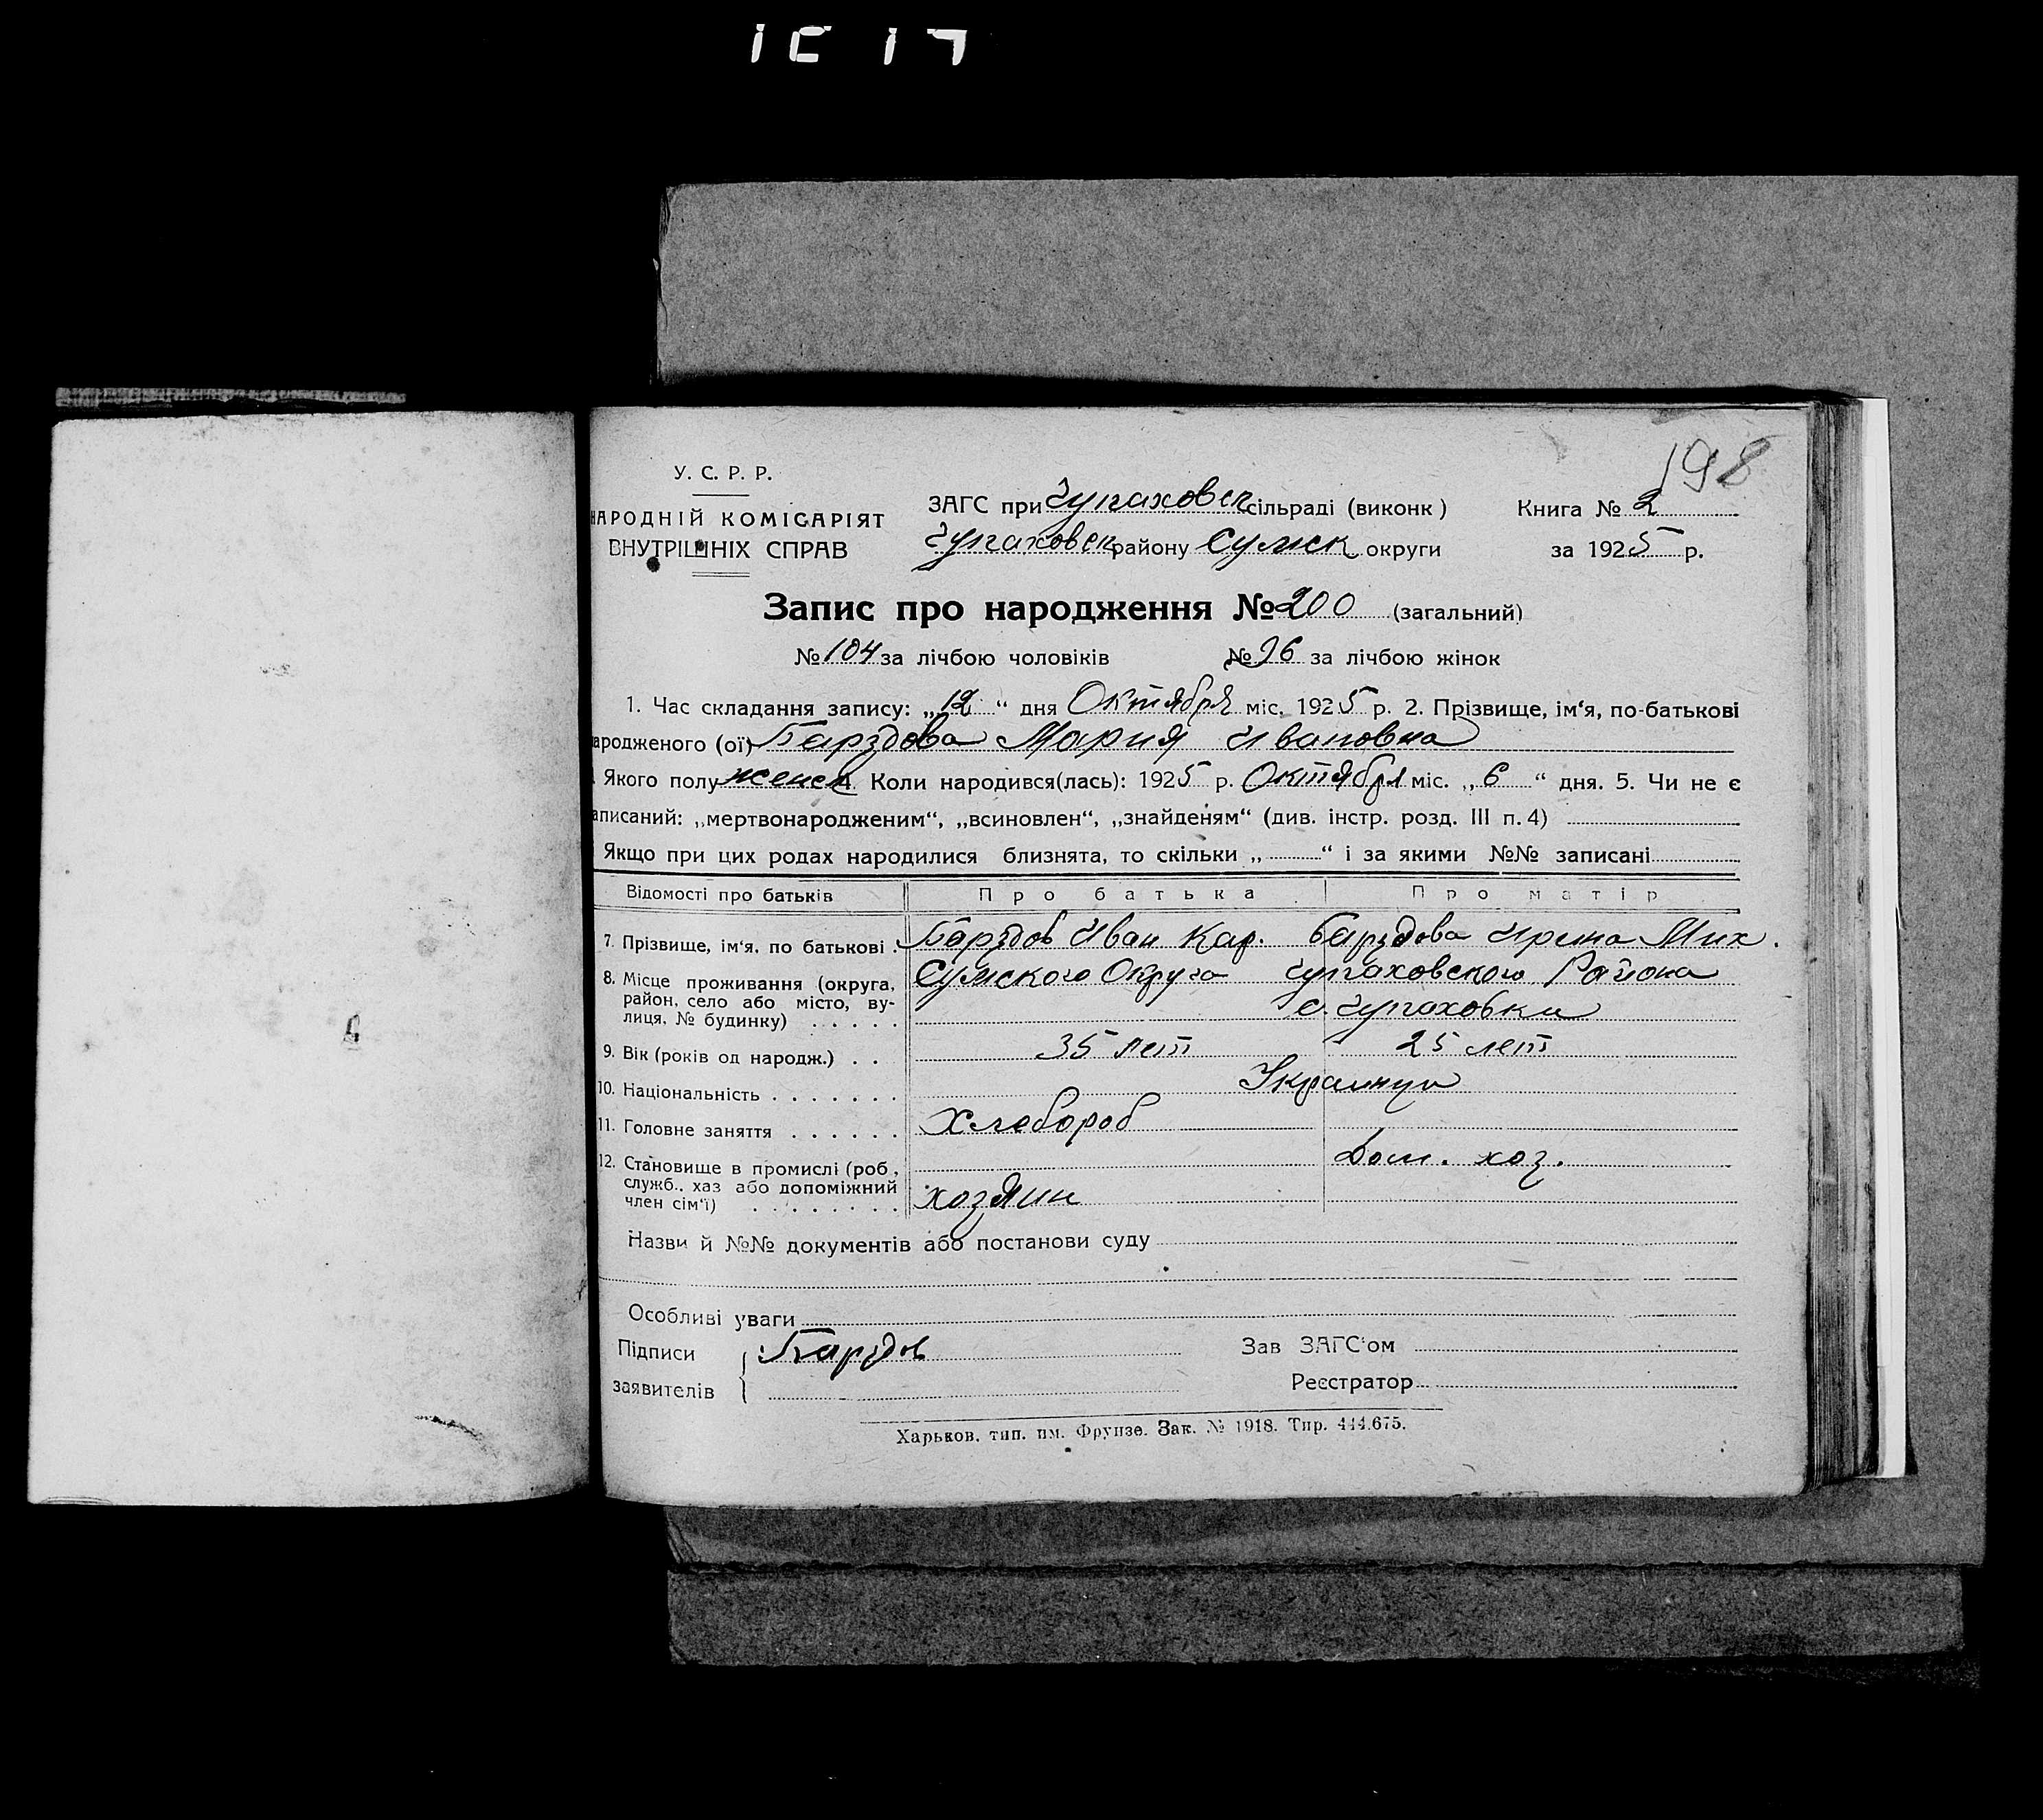 198
У. С. Р. Р.
НАРОДНІЙ КОМІСАРІЯТ
ВНУТРІШНІХ СПРАВ
ЗАГС при Чупаховск сільраді (виконк)
Чупаховск району Сумск округи
Книга № 2
за 1925 р.
Запис про народження № 200 (загальний)
№ 104 за лічбою чоловіків № 96 за лічбою жінок
1. Час складання запису: „12“ дня Октября міс. 1925 р. 2. Прізвище, ім‘я, по-батькові
ародженого (ої) Барздова Мария Ивановна
. Якого полу женск 4. Коли народився(лась): 1925 р. Октября міс. „6“ дня. 5. Чи не є
аписаний: „мертвонародженим“, „всиновлен“, „знайденям“ (див. інстр. розд. III п. 4)
Якщо при цих родах народилися близнята, то скільки „ “ і за якими №№ записані
Відомості про батьків Про батька Про матір
7. Прізвище, ім‘я, по батькові . Барздов Иван Кар. Барздова Ирина Мих.
8. Місце проживання (округа, Сумского Округа Чупаховского Района
район, село або місто, ву- с. Чупаховки
лиця, № будинку) . . . . .
9. Вік (років од народж.) . . 35 лет 25 лет
10. Національність . . . . . . . Украинцы
11. Головне заняття . . . . . . Хлебороб
12. Становище в промислі (роб, Дом. хоз.
служб., хаз або допоміжний хозяин
член сім‘ї) . . . . . . . .
Назви й №№ документів або постанови суду
Особливі уваги
Підписи Барздов Зав ЗАГС‘ом
заявителів Реєстратор
Харьков, тип. им. Фрунзе. Зак. № 1918. Тир. 444.675.